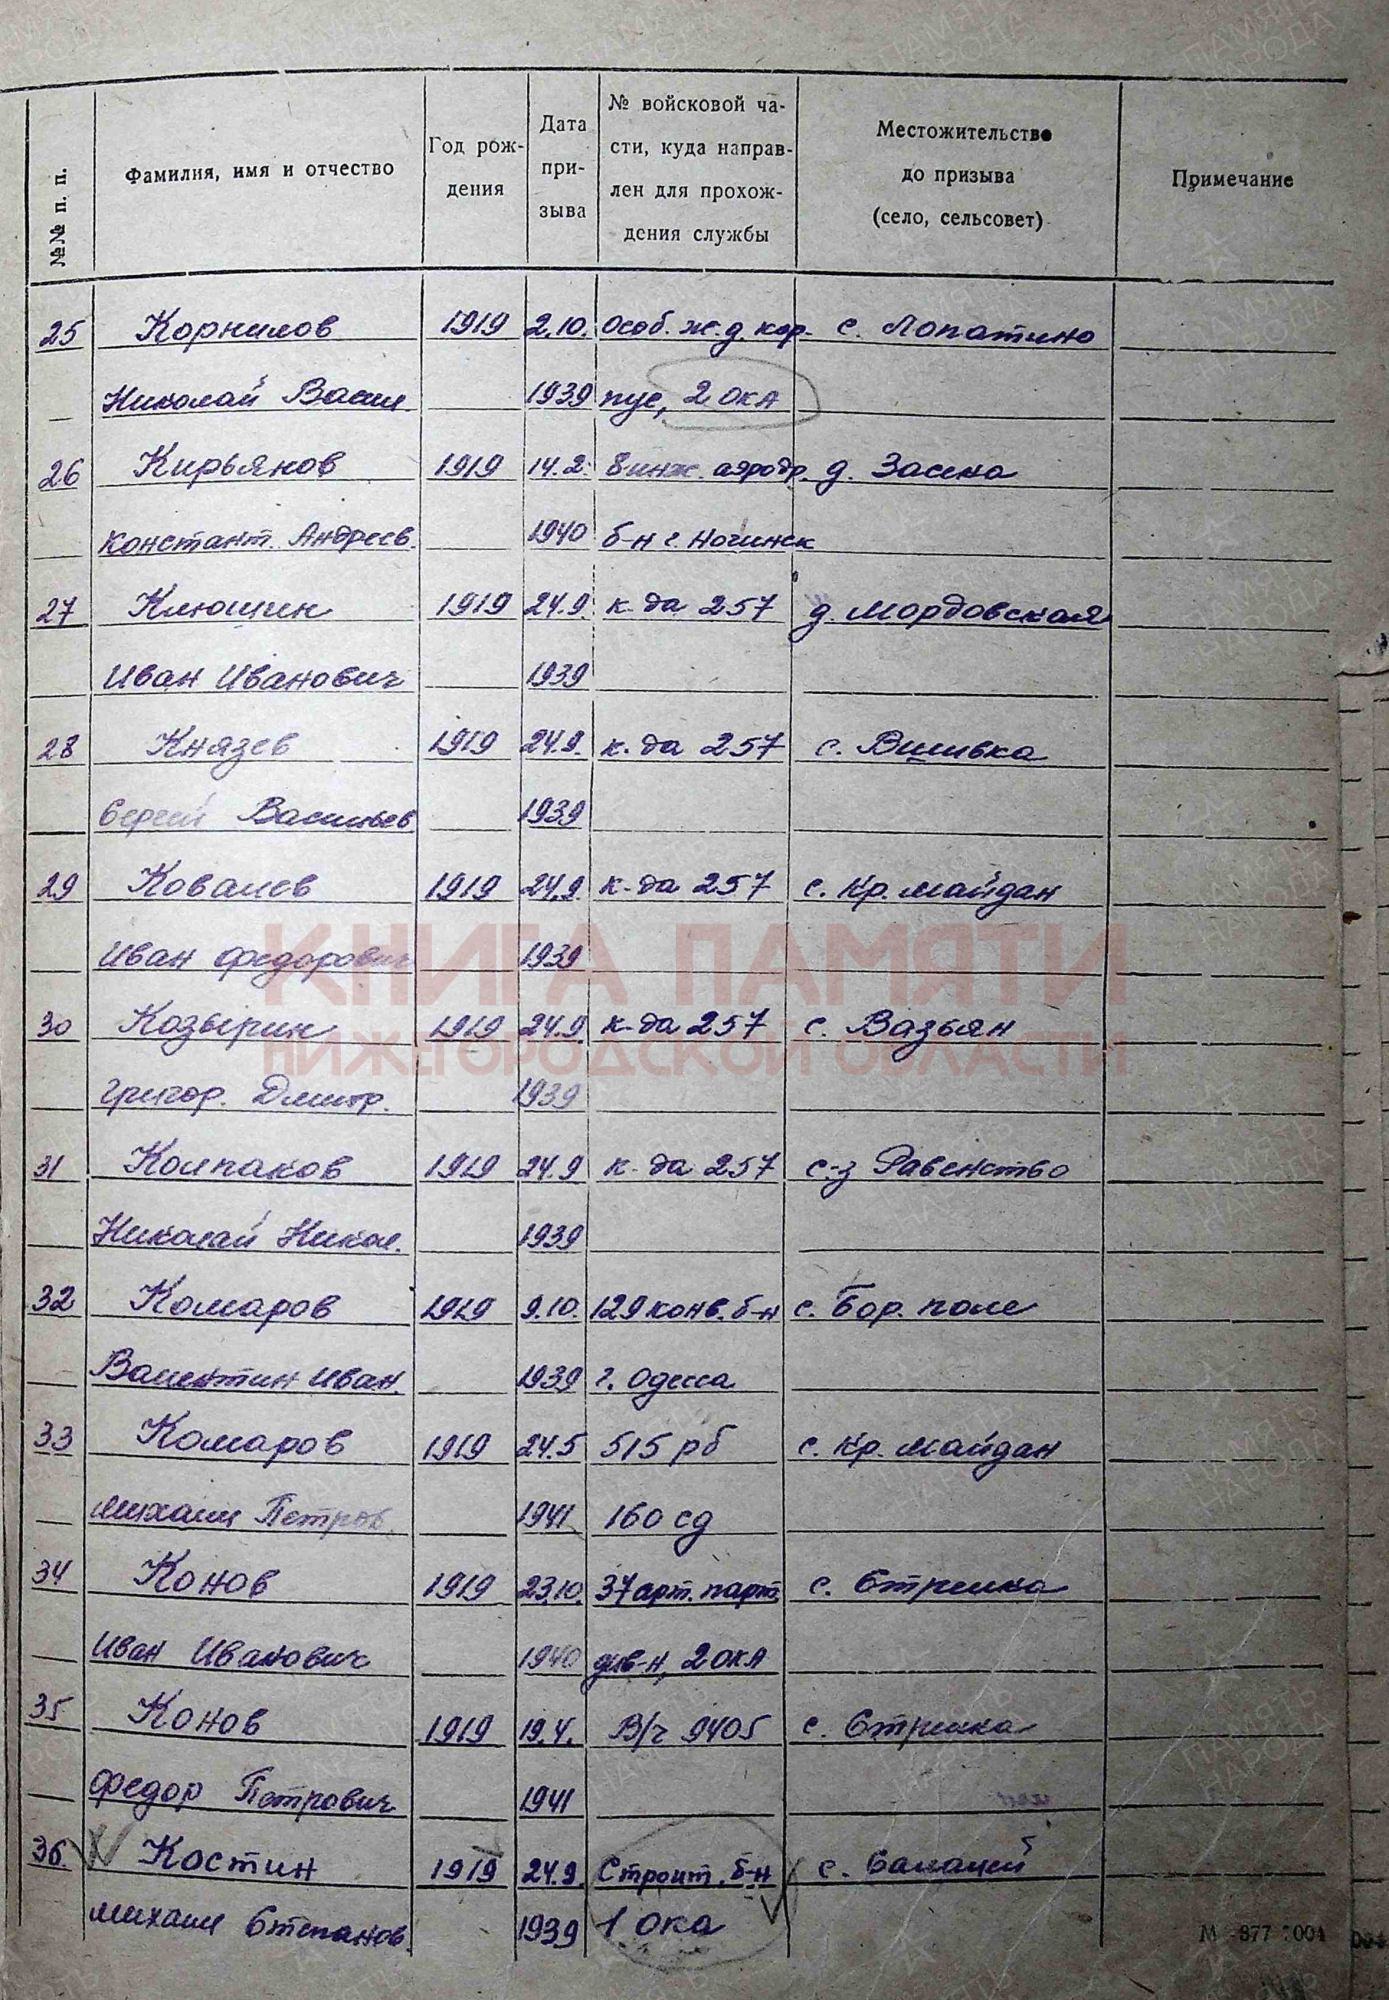 №№ п. п.
Фамилия, имя и отчество
Год рож-
дения
Дата
при-
зыва
№ войсковой ча-
сти, куда направ-
лен для прохож-
дения службы
Местожительство
до призыва
(село, сельсовет)
Примечание
25 Корнилов 1919 2.10. Особ. ж.д. кор- с. Лопатино
Николай Васил. 1939 пус, 2 ОКА
26 Кирьянов 1919 14.2. 8 инж. аэродр. д. Засека
Констант. Андреев. 1940 б-н г. Ногинск
27 Клюшин 1919 24.9. к-да 257 д. Мордовская
Иван Иванович 1939
28 Князев 1919 24.9. к-да 257 с. Вшивка
Сергей Васильев 1939
29 Ковалев 1919 24.9. к-да 257 с. Кр. Майдан
Иван Федорович 1939
КНИГА ПАМЯТИ
30 Козырин 1919 24.9. к-да 257 с. Вазьян
НИЖЕГОРОДСКОЙ ОБЛАСТИ
Григор. Дмитр. 1939
31 Колпаков 1919 24.9 к-да 257 с-з Равенство
Николай Никол. 1939
32 Комаров 1919 9.10. 129 конв. б-н с. Бор. поле
Валентин Иван. 1939 г. Одесса
33 Комаров 1919 24.5 515 рб с. Кр. Майдан
Михаил Петров. 1941 160 сд
34 Конов 1919 23.10. 37 арт. парт. с. Стрелка
Иван Иванович 1940 див-н, 2 ОКА
35 Конов 1919 19.4. В/ч 9405 с. Стрелка
Федор Петрович 1941
36. Костин 1919 24.9. Строит. б-н с. Салалей
Михаил Степанов. 1939 1 ОКА